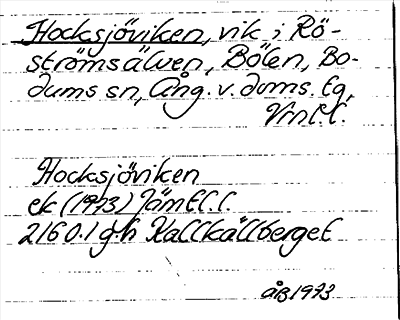 Hocksjöviken, vik i Rö-
strömsälven, Bölen, Bo-
dums sn, Ång. v. doms. tg,
Vrnl.l.
Hocksjöviken
ek (1973) Jämtl.l.
2160.1 g.h Kallkällberget
ÅB 1973